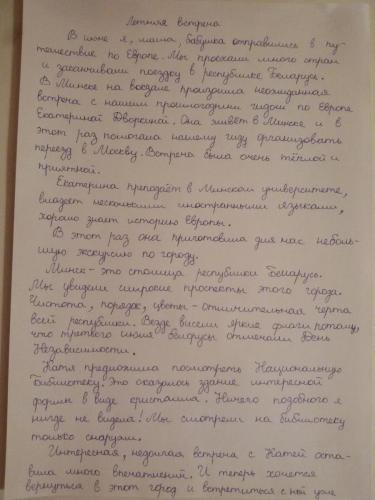 Летняя встреча
В июне я, мама, бабушка отправились в пу-
тешествие по Европе. Мы проехали много стран
и заканчивали поездку в республике Беларусь.
В Минске на вокзале произошла неожиданная
встреча с нашим прошлогодним гидом по Европе
Екатериной Дворкиной. Она живёт в Минске и в
этот раз помогала нашему гиду организовать
переезд в Москву. Встреча была очень тёплой и
приятной.
Екатерина преподаёт в Минском университете,
владеет несколькими иностранными языками,
хорошо знает историю европы.
В этот раз она приготовила для нас неболь-
шую экскурсию по городу.
Минск - это столица республики Беларусь.
Мы увидели широкие проспекты этого города.
Чистота, порядок, цветы - отличительная черта
всей республики. Везде висели яркие флаги потому,
что третьего июля белорусы отмечали День
Независимости.
Катя предложила посмотреть Национальную
библиотеку. Это оказалось здание интересной
формы в виде кристалла. Ничего подобного я
нигде не видела! Мы смотрели на библиотеку
только снаружи.
Интересная, недолгая встреча с Катей оста-
вила много впечатлений. И теперь хочется
вернуться в этот город и встретиться с ней уже